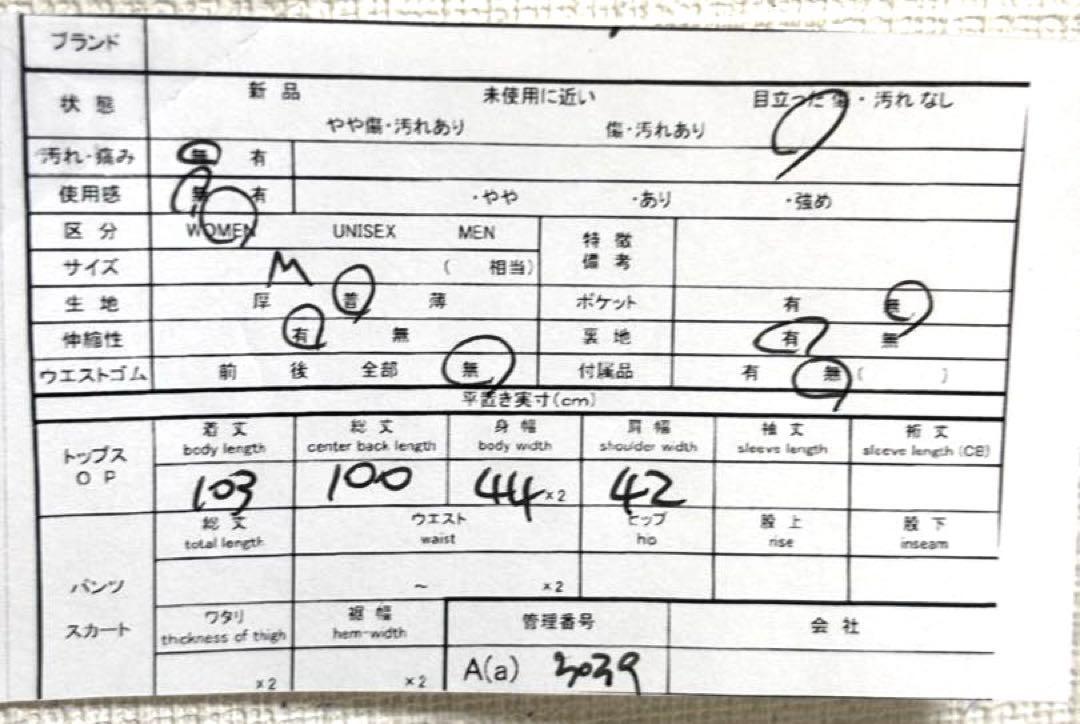 ブランド
状態 新品 未使用に近い 目立った傷・汚れなし
やや傷・汚れあり 傷・汚れあり
汚れ・痛み 無 有
使用感 無 有 ・やや ・あり ・強め
区分 WOMEN UNISEX MEN 特徴
備考
サイズ M ( 相当)
生地 厚 普 薄 ポケット 有 無
伸縮性 有 無 裏地 有 無
ウエストゴム 前 後 全部 無 付属品 有 無 ( )
平置き実寸(cm)
トップス
OP
着丈 総丈 身幅 肩幅 袖丈 裄丈
body length center back length body width shoulder width sleeve length sleeve length (CB)
103 100 44 ×2 42
パンツ
スカート
総丈 ウエスト ヒップ 股上 股下
total length waist hip rise inseam
～ ×2
ワタリ 裾幅 管理番号 会社
thickness of thigh hem-width
×2 ×2 A(a) 3039